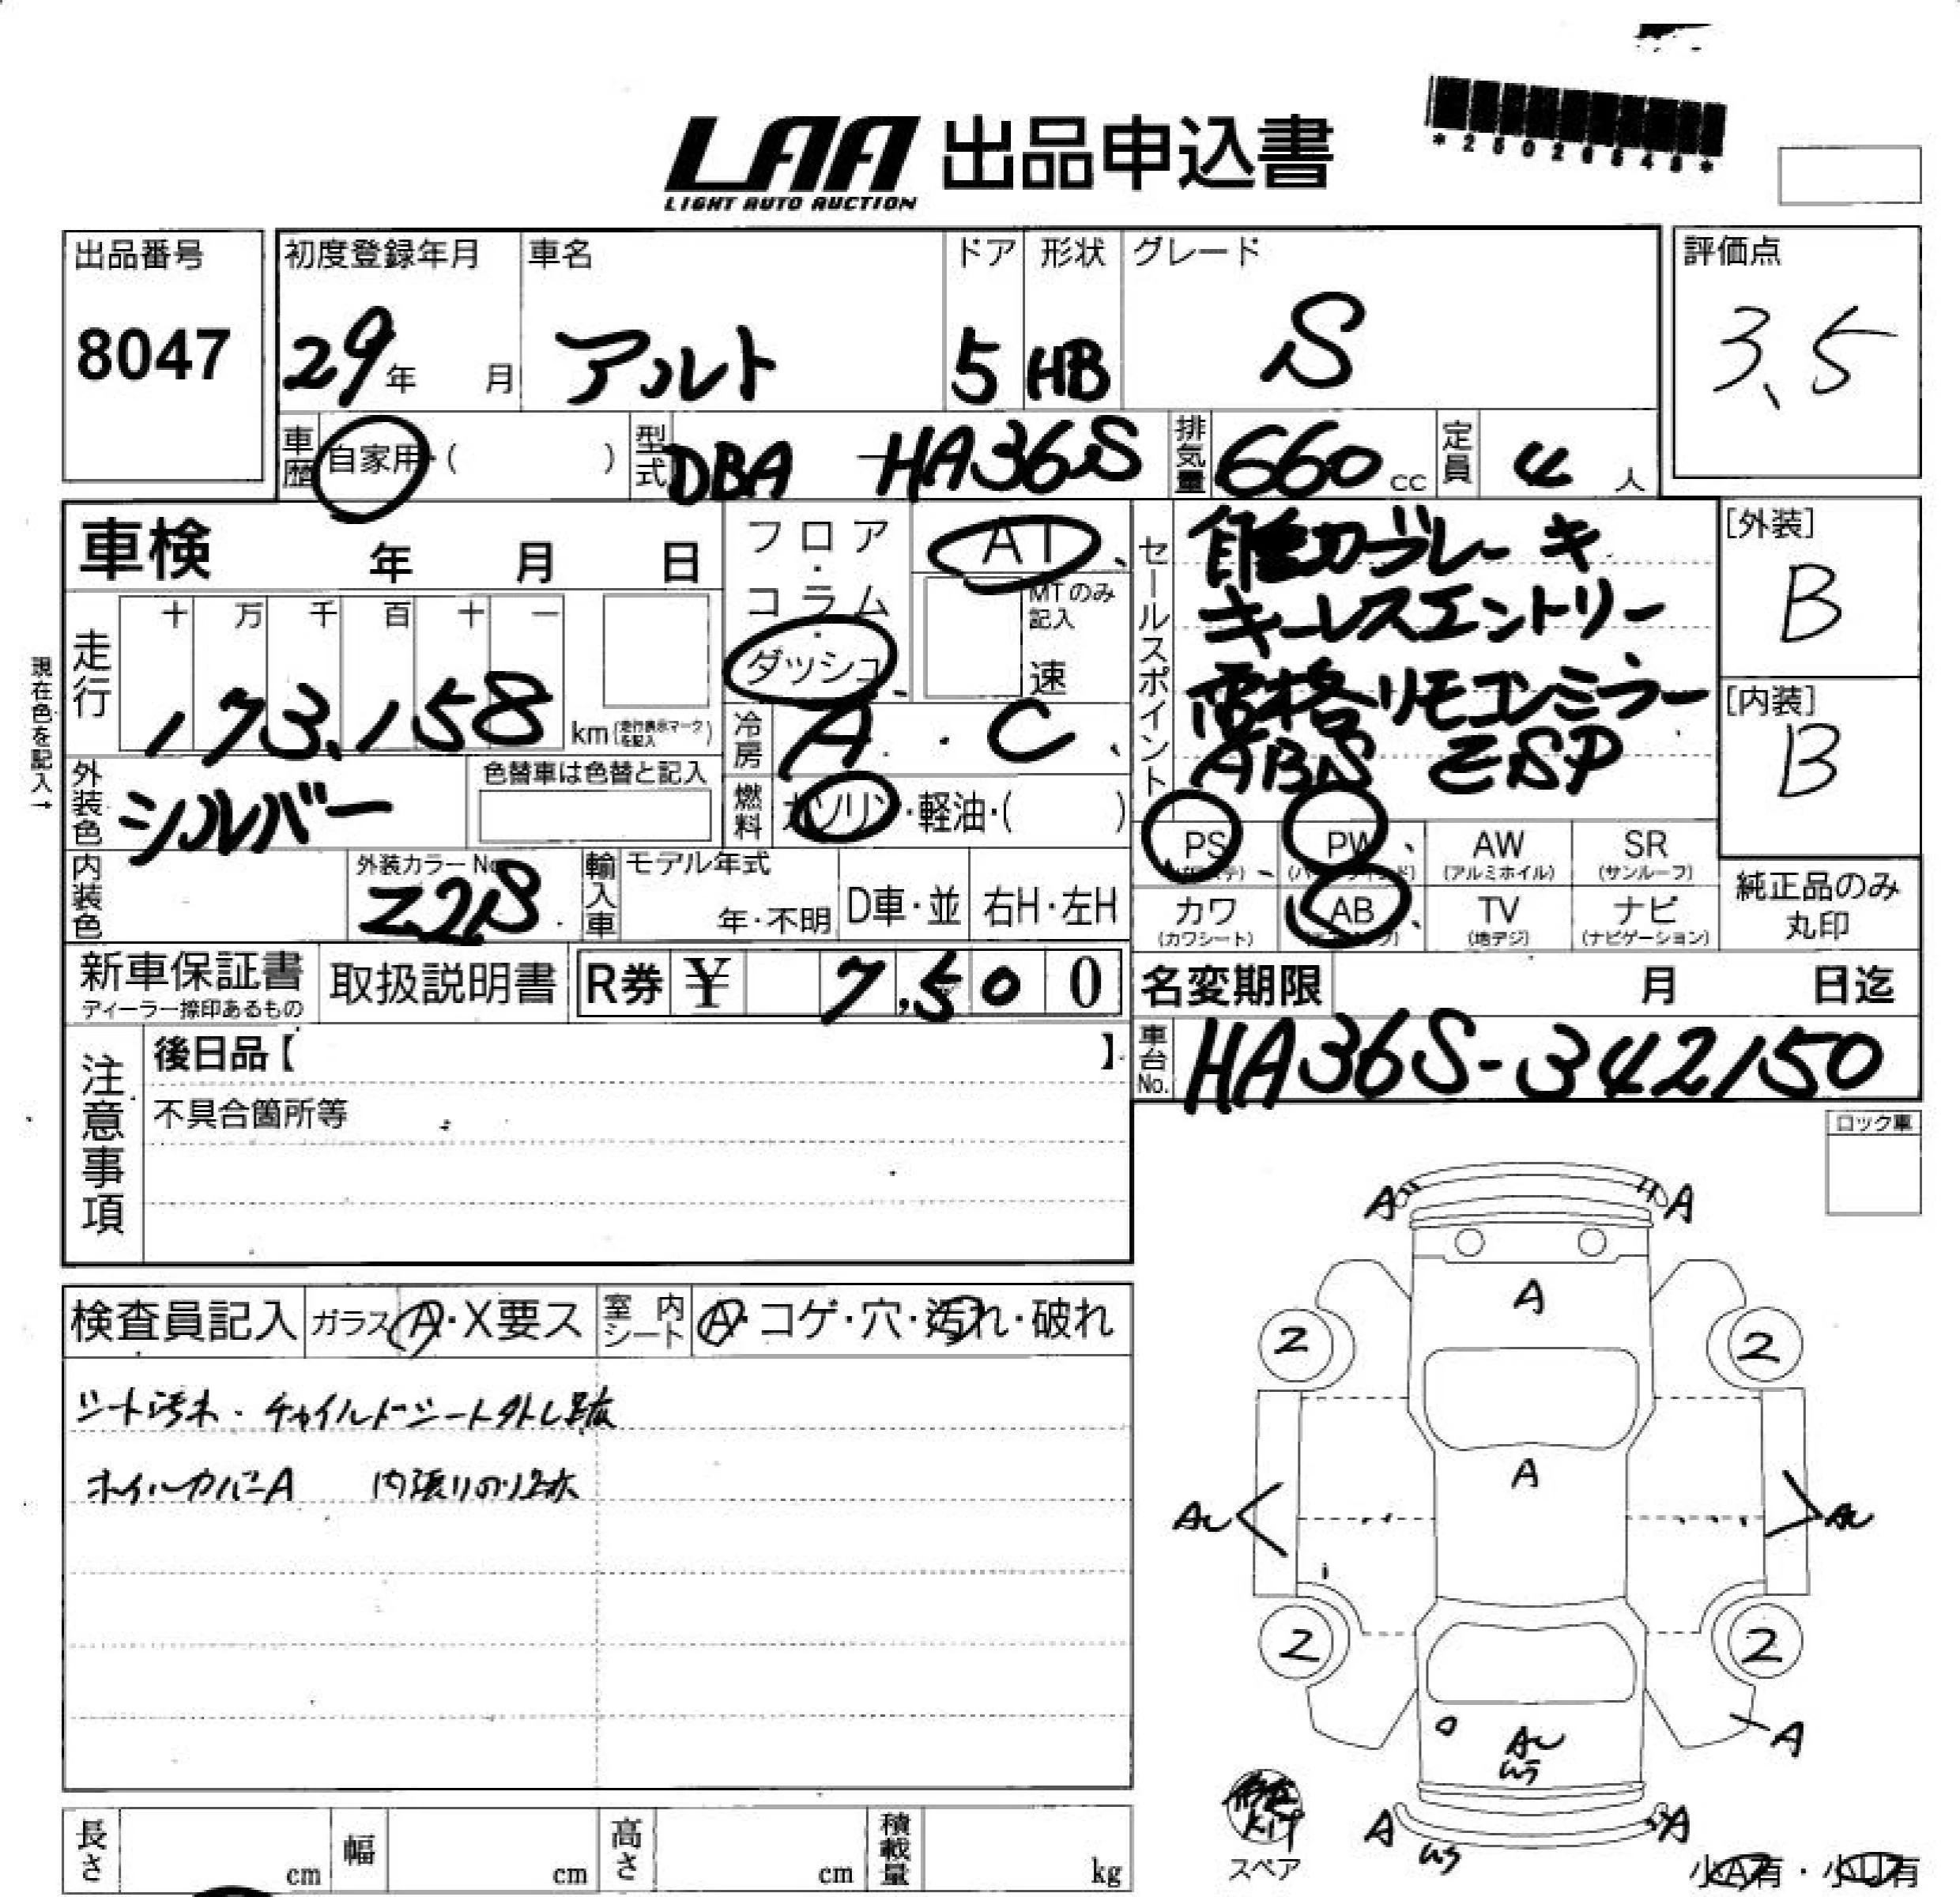 LAA 出品申込書
LIGHT AUTO AUCTION
出品番号
8047
初度登録年月
29年 月
車名
アルト
ドア
5
形状
HB
グレード
S
評価点
3.5
車歴
自家用・( )
型式
DBA-HA36S
排気量
660cc
定員
4人
車検 年 月 日
フロア・コラム・ダッシュ
AT
MTのみ記入
速
セールスポイント
自動ブレーキ
キーレスエントリー
電格リモコンミラー
ABS ESP
[外装]
B
[内装]
B
現在色を記入→
走行
十 万 千 百 十 一
173,158
km(走行表示マークを記入)
冷房
A・C
外装色
シルバー
色替車は色替と記入
燃料
ガソリン・軽油・( )
PS
PW
AW
(アルミホイル)
SR
(サンルーフ)
内装色
外装カラーNo.
Z2S
輸入車
モデル年式
年・不明
D車・並
右H・左H
カワ
(カワシート)
AB
TV
(地デジ)
ナビ
(ナビゲーション)
純正品のみ
丸印
新車保証書
ディーラー捺印あるもの
取扱説明書
R券 ¥ 7,500
名変期限 月 日迄
注意事項
後日品【 】
不具合箇所等
車台No.
HA36S-342150
ロック車
検査員記入
ガラス A・X要ス
室内シート
A・コゲ・穴・汚れ・破れ
シート汚れ・チャイルドシート外し跡
ホイルカバーA 内張りのり跡
A A
A
2 2
A
AU AU
2 2
AU
A
A A
スペア
小A有・小U有
長さ cm
幅 cm
高さ cm
積載量 kg